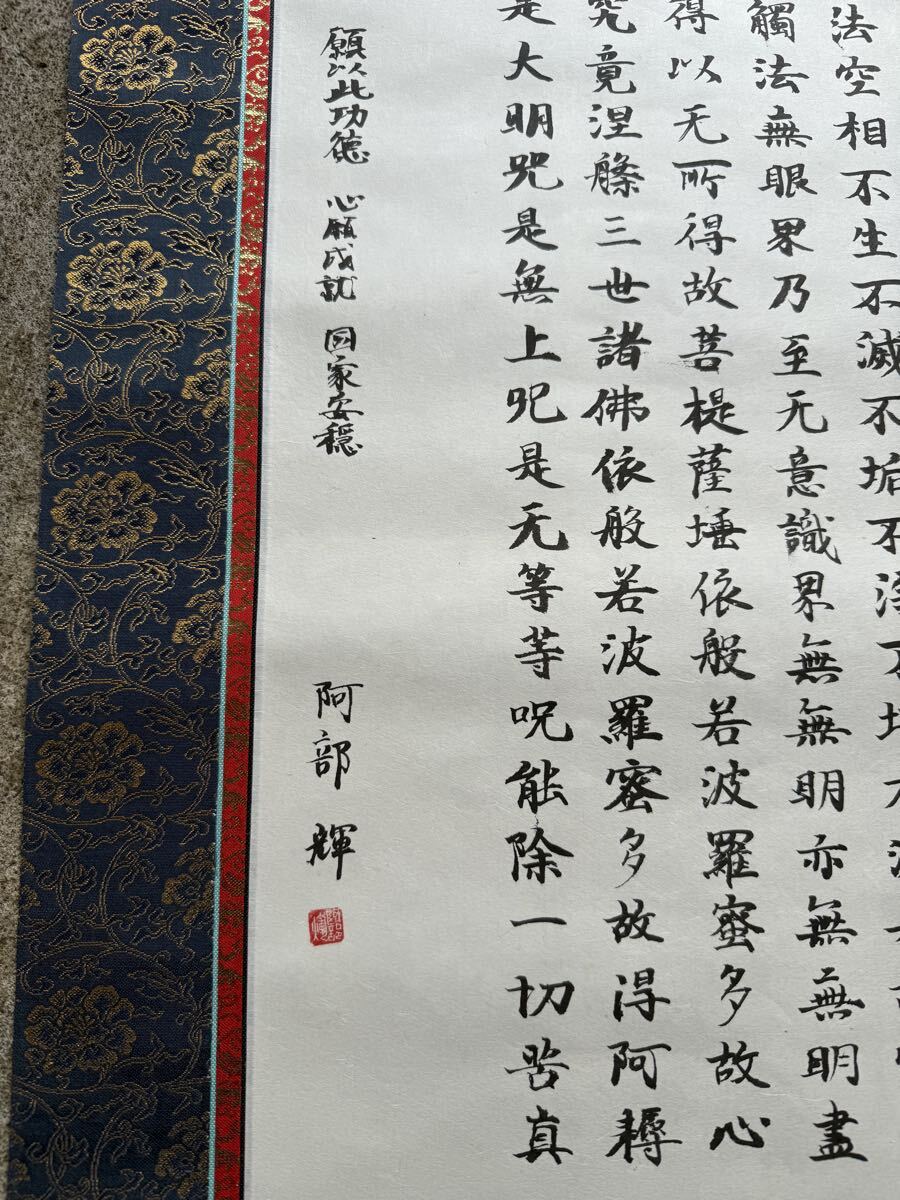 法空相不生不滅不垢不
觸法無眼界乃至无意識界無無明亦無無明盡
得以无所得故菩提薩埵依般若波羅蜜多故心
究竟涅槃三世諸佛依般若波羅蜜多故得阿耨
是大明咒是無上咒是无等等呪能除一切苦真
願以此功徳 心願成就 国家安穏
阿部 輝